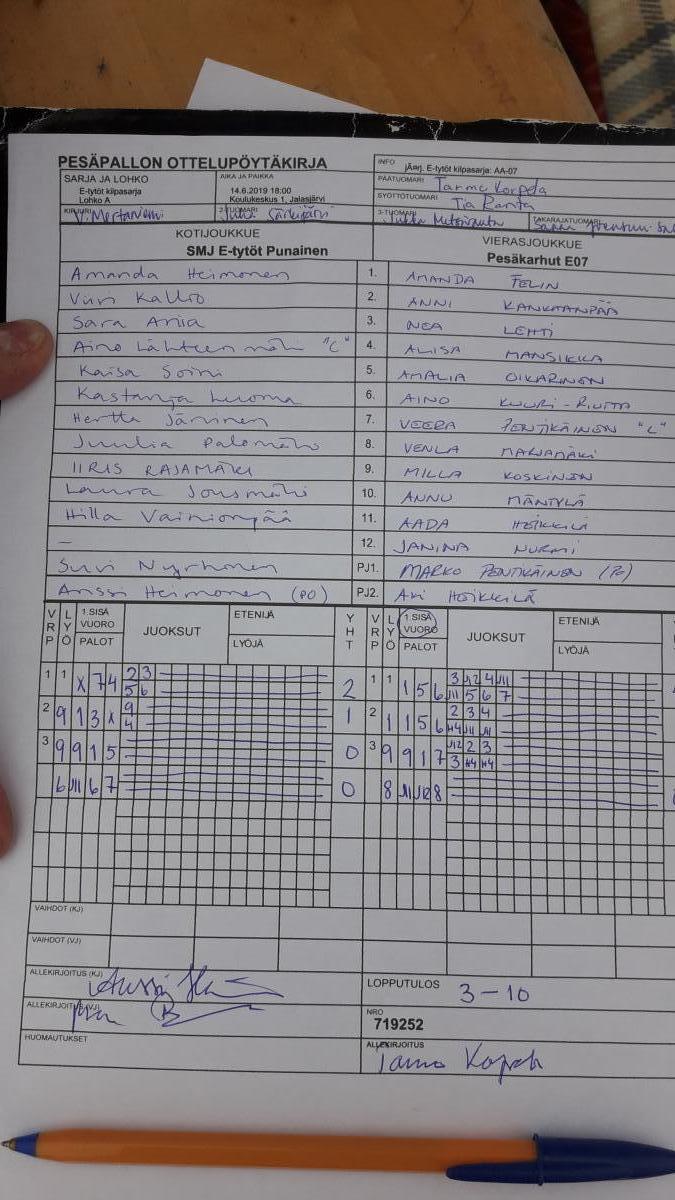 PESÄPALLON OTTELUPÖYTÄKIRJA
INFO jÄarj. E-tytöt kilpasarja: AA-07
SARJA JA LOHKO
E-tytöt kilpasarja
Lohko A
AIKA JA PAIKKA
14.6.2019 18:00
Koulukeskus 1, Jalasjärvi
PÄÄTUOMARI Tarmo Korpela
SYÖTTÖTUOMARI Tia Ranta
KIRJURI V. Mertaniemi
2-TUOMARI
3-TUOMARI Jukka
TAKARAJATUOMARI
KOTIJOUKKUE
SMJ E-tytöt Punainen
VIERASJOUKKUE
Pesäkarhut E07
Amanda Heimonen 1. AMANDA FELIN
Viivi Kallio 2. ANNI KANKAANPÄÄ
Sara Ania 3. NEA LEHTI
Aino Lähteenmäki "C" 4. ALIISA MANSIKKA
Kaisa Soini 5. AMALIA OIKARINEN
Kastanja Luoma 6. AINO KUURI-RIUTTA
Hertta Järvinen 7. VEERA PENTIKÄINEN "C"
Juulia Palomäki 8. VENLA MARJAMÄKI
IIRIS RAJAMÄKI 9. MILLA KOSKINEN
Laura Jousmäki 10. ANNU MÄNTYLÄ
Hilla Vainionpää 11. AADA HEIKKILÄ
– 12. JANINA NURMI
Suvi Nyrhonen PJ1. MARKO PENTIKÄINEN (PO)
Anssi Heimonen (PO) PJ2. Ari HEIKKILÄ
VRP LYÖ 1.SISÄ VUORO PALOT JUOKSUT ETENIJÄ LYÖJÄ YHT VRP LYÖ 1.SISÄ VUORO PALOT JUOKSUT ETENIJÄ LYÖJÄ
1 1 X 7 4 2 3 2 1 1 1 5 6 3 12 4 11
5 6 11 5 6 7
2 9 1 3 X 9 1 2 1 1 5 6 2 3 4
4 H4 11 11
3 9 9 1 5 0 3 9 9 1 7 12 2 3
3 H4 H4
6 11 6 7 0 8 11 12 8
VAIHDOT (KJ)
VAIHDOT (VJ)
ALLEKIRJOITUS (KJ)
LOPPUTULOS 3-10
ALLEKIRJOITUS (VJ)
NRO
719252
HUOMAUTUKSET
ALLEKIRJOITUS